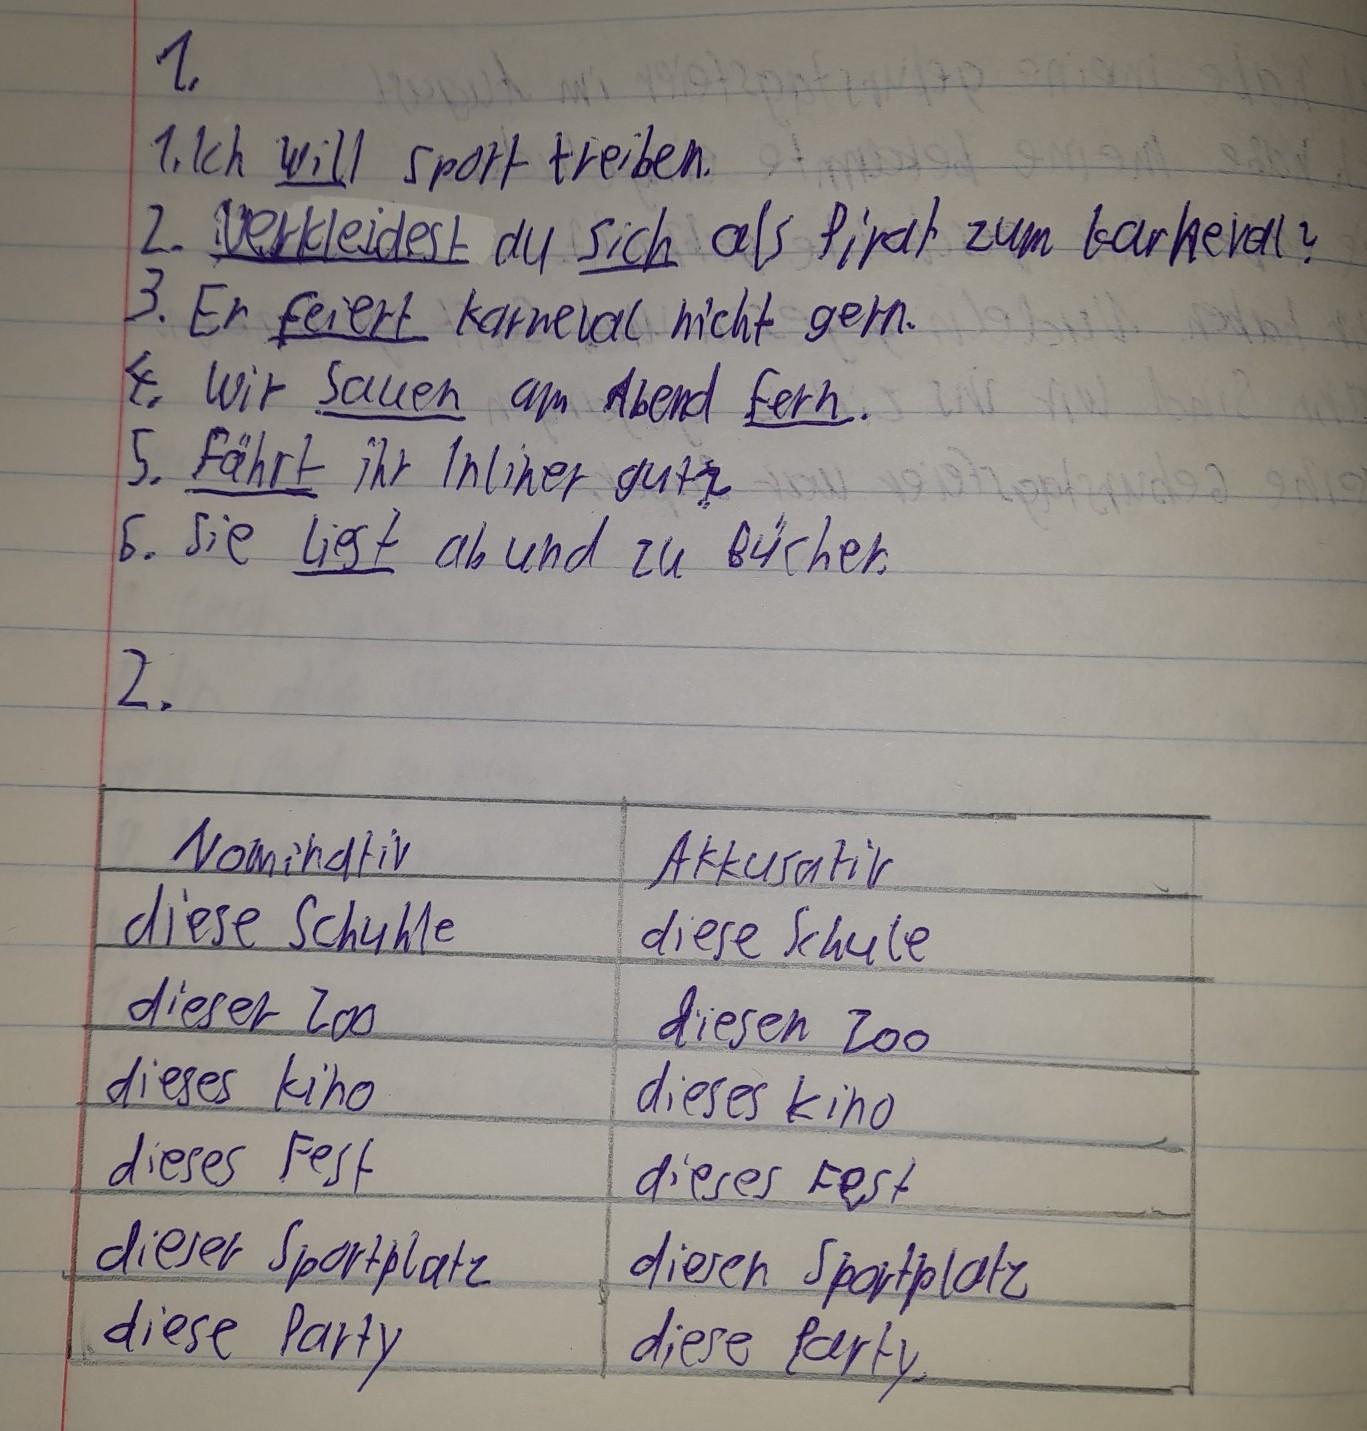 1.
1. Ich will sport treiben.
2. Verkleidest du sich als Pirat zum karneval?
3. Er feiert karneval nicht gern.
4. Wir sauen am Abend fern.
5. Fährt ihr Inliner gut?
6. Sie liest ab und zu Bücher.
2.
Nominativ Akkusativ
diese Schuhle diese Schule
dieser Zoo diesen Zoo
dieses kino dieses kino
dieses Fest dieses Fest
dieser Sportplatz diesen Sportplatz
diese Party diese Party.